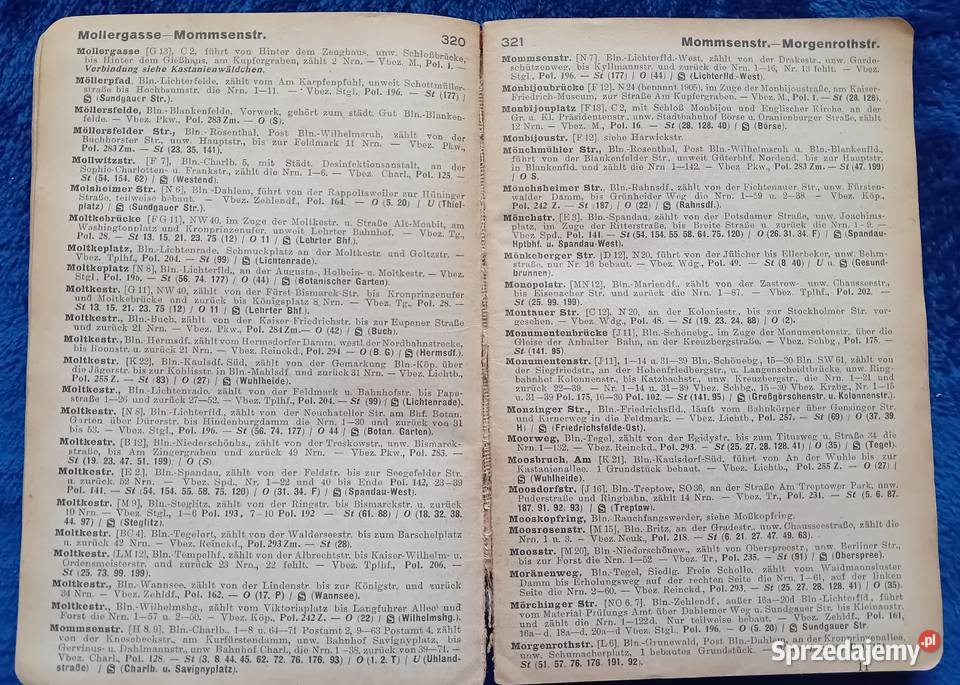 Mollergasse—Mommsenstr.
320
Mollergasse [G 13], C 2, führt von Hinter dem Zeughaus, unw. Schloßbrücke,
bis Hinter dem Gießhaus, am Kupfergraben, zählt 2 Nrn. — Vbez. M., Pol. 1. —
Verbindung siehe Kastanienwäldchen.
Möllerpfad, Bln.-Lichterfelde, zählt vom Am Karpfenpfuhl, unweit Schottmüller-
straße bis Hochbaumstr. die Nrn. 1—11. — Vbez. Stgl., Pol. 196. — St (177) /
(Sundgauer Str.).
Möllersfelde, Bln.-Blankenfelde, Vorwerk, gehört zum städt. Gut Bln.-Blanken-
felde. — Vbez. Pkw., Pol. 283 Zm. — O (S).
Möllersfelder Str., Bln.-Rosenthal, Post Bln.-Wilhelmsruh, zählt von der
Buchhorster Str., unw. Hauptstr., bis zur Feldmark 11 Nrn. — Vbez. Pkw.,
Pol. 283 Zm. — St (23. 35. 141).
Mollwitzstr. [F 7], Bln.-Charlb. 5, mit Städt. Desinfektionsanstalt, an der
Sophie-Charlotten- u. Frankstr., zählt die Nrn. 1—6. — Vbez. Charl., Pol. 125. —
St (54. 154. 62) / (Westend).
Molsheimer Str. [N 6], Bln.-Dahlem, führt von der Rappoltsweiler zur Hüninger
Straße, teilweise bebaut. — Vbez. Zehlendf., Pol. 164. — O (5. 20) / U (Thiel-
platz) / (Sundgauer Str.).
Moltkebrücke [F G 11], NW 40, im Zuge der Moltkestr. u. Straße Alt-Moabit, am
Washingtonplatz und Kronprinzenufer, unweit Lehrter Bahnhof. — Vbez. Tg.,
Pol. 28. — St 13. 15. 21. 23. 75 (12) / O 11 / (Lehrter Bhf.).
Moltkeplatz, Bln.-Lichtenrade, Schmuckplatz an der Moltkestr. und Goltzstr. —
Vbez. Tplhf., Pol. 204. — St (99) / (Lichtenrade).
Moltkeplatz [N 8], Bln.-Lichterfld., an der Augusta-, Holbein- u. Moltkestr. — Vbez.
Stgl., Pol. 196. — St (56. 74. 177) / O (44) / (Botanischer Garten).
Moltkestr. [G 11], NW 40, zählt von der Fürst-Bismarck-Str. bis Kronprinzenufer
und Moltkebrücke und zurück bis Königsplatz 8 Nrn. — Vbez. Tg., Pol. 28. —
St 13. 15. 21. 23. 75 (12) / O 11 / (Lehrter Bhf.).
Moltkestr., Bln.-Buch, zählt von der Kaiser-Friedrichstr. bis zur Eupener Straße
und zurück 21 Nrn. — Vbez. Pkw., Pol. 284 Zm. — O (42) / (Buch).
Moltkestr., Bln.-Hermsdf. zählt vom Hermsdorfer Damm, westl. der Nordbahnstrecke,
bis Roonstr. u. zurück 21 Nrn. — Vbez. Reinckd., Pol. 294 — O (B. G) / (Hermsdf.).
Moltkestr. [K 22], Bln.-Kaulsdf. Süd, zählt von der Gemarkung Bln.-Köp. über
die Jägerstr. bis zur Kohlisstr. in Bln.-Mahlsdf. und zurück 31 Nrn. — Vbez. Lichtb.,
Pol. 255 Z. — St (83) / O (27) / (Wuhlheide).
Moltkestr., Bln.-Lichtenrade, zählt von der Feldmark u. Bahnhofstr. bis Pape-
straße 1—26 und zurück 27—52. — Vbez. Tplhf., Pol. 204. — St (99) / (Lichtenrade).
Moltkestr. [N 8], Bln.-Lichterfld., zählt von der Neuchateller Str. am Bhf. Botan.
Garten über Dürerstr. bis Hindenburgdamm die Nrn. 1—30 und zurück von 31
bis 53. — Vbez. Stgl., Pol. 196. — St (56. 74. 177) / O 44 / (Botan. Garten).
Moltkestr. [B 12], Bln.-Niederschönhs., zählt von der Treskowstr., unw. Bismarck-
straße, bis Am Zingergraben und zurück 49 Nrn. — Vbez. Pkw., Pol. 283. —
St (19. 23. 47. 51. 199) / O (S).
Moltkestr. [E 2], Bln.-Spandau, zählt von der Feldstr. bis zur Seegefelder Str.
u. zurück 52 Nrn. — Vbez. Spd., Nr. 1—22 und 40 bis Ende Pol. 142, 23—39
Pol. 141. — St (54. 154. 55. 58. 75. 120) / O (31. 34. F) / (Spandau-West).
Moltkestr. [M 9], Bln.-Steglitz, zählt von der Ringstr. bis Bismarckstr. u. zurück
10 Nrn. — Vbez. Stgl., 1—6 Pol. 193, 7—10 Pol. 192 — St (61. 88) / O (18. 32. 38.
44. 97) / (Steglitz).
Moltkestr. [BC 4], Bln.-Tegelort, zählt von der Walderseestr. bis zum Barschelplatz
u. zurück 42 Nrn. — Vbez. Reinckd., Pol. 293 Zm. — St (28).
Moltkestr. [LM 12], Bln.-Tempelhf., zählt von der Albrechtstr. bis Kaiser-Wilhelm- u.
Ordensmeisterstr. und zurück 23 Nrn., 22 fehlt. — Vbez. Tplhf., Pol. 206. —
St (25. 73. 99. 199).
Moltkestr., Bln.-Wannsee, zählt von der Lindenstr. bis zur Königstr. und zurück
34 Nrn. — Vbez. Zehldf., Pol. 162. — O (17. P) / (Wannsee).
Moltkestr., Bln.-Wilhelmshg., zählt vom Viktoriaplatz bis Langfuhrer Allee und
Forst die Nrn. 1—57 u. 2—50. — Vbez. Köp., Pol. 242 Z. — O (22) / (Wilhelmshg.).
Mommsenstr. [H 8. 9], Bln.-Charlb. 1—8 u. 64—71 Postamt 2, 9—63 Postamt 4, zählt
von der Knesebeckstr., am Kurfürstendamm, unw. Bahnhof Savignyplatz, bis
Gervinus- u. Dahlmannstr., unw. Bahnhof Charl., die Nrn. 1—38, zurück von 39—71. —
Vbez. Charl., Pol. 128. — St (3. 8. 44. 45. 62. 72. 76. 176. 93) / O (1. 2. T) / U (Uhland-
straße) / (Charlb. u. Savignyplatz).
321
Mommsenstr.—Morgenrothstr.
Mommsenstr. [N 7], Bln.-Lichterfld.-West, zählt von der Drakestr., unw. Garde-
schützenweg, bis Kyllmannstr. und zurück die Nrn. 1—16, Nr. 13 fehlt. — Vbez.
Stgl., Pol. 196. — St (177) / O (44) / (Lichterfld.-West).
Monbijoubrücke [F 12], N 24 (benannt 1905), im Zuge der Monbijoustraße, am Kaiser-
Friedrich-Museum, zur Straße Am Kupfergraben. — Vbez. M., Pol. 1. — St (28. 128).
Monbijouplatz [F 13], C 2, mit Schloß Monbijou und Englischer Kirche, an der
Gr. u. Kl. Präsidentenstr., unw. Stadtbahnhof Börse u. Oranienburger Straße, zählt
12 Nrn. — Vbez. M., Pol. 16 — St (28. 128. 40) / (Börse).
Monbijoustr. [F 12], siehe Harwickstr.
Mönchmühler Str., Bln.-Rosenthal, Post Bln.-Wilhelmsruh u. Bln.-Blankenfld.,
führt von der Blankenfelder Str., unweit Güterbhf. Nordend, bis zur Hauptstr.
in Blankenfld. und zählt die Nrn. 1—142. — Vbez. Pkw., Pol. 283 Zm. — St (47. 199)
/ O S.
Mönchsheimer Str., Bln.-Rahnsdf., zählt von der Fichtenauer Str., unw. Fürsten-
walder Damm, bis Grünheider Weg die Nrn. 1—59 u. 2—38. — Vbez. Köp.,
Pol. 242 Z. — St (187) / O (22) / (Rahnsdf.).
Mönchstr. [E 3], Bln.-Spandau, zählt von der Potsdamer Straße, unw. Joachims-
platz, im Zuge der Ritterstraße, bis Breite Straße u. zurück die Nrn. 1—9. —
Vbez. Spd., Pol. 141. — St (54. 154. 55. 58. 64. 75. 120) / O (26. 31. 34. F) / (Spandau-
Hptbhf. u. Spandau-West).
Mönkeberger Str. [D 12], N 20, führt von der Jülicher bis Ellerbeker, unw. Behm-
straße, nur Nr. 16 bebaut. — Vbez. Wdg., Pol. 49. — St (8. 40) / U u. (Gesund-
brunnen).
Monopolstr. [MN 12], Bln.-Mariendf., zählt von der Zastrow- unw. Chausseestr.,
bis Eisenacher Str. und zurück die Nrn. 1—87. — Vbez. Tplhf., Pol. 202. —
St (25. 99. 199).
Montauer Str. [C 12], N 20, an der Koloniestr., bis zur Stockholmer Str. vor-
gesehen. — Vbez. Wdg., Pol. 48. — St (19. 23. 24. 88) / O (2).
Monumentenbrücke [J 11], Bln.-Schönebg., im Zuge der Monumentenstr. über die
Gleise der Anhalter Bahn, an der Kreuzbergstraße. — Vbez. Schbg., Pol. 175. —
St (141. 95).
Monumentenstr. [J 11], 1—14 u. 31—39 Bln.-Schönebg., 15—30 Bln. SW 61, zählt von
der Siegfriedstr., an der Hohenfriedbergstr., u. Langenscheidtbrücke, unw. Ring-
bahnhof Kolonnenstr., bis Katzbachstr., unw. Kreuzbergstr., die Nrn. 1—21 und
zurück 22—39. — Nr. 1—14 u. 31—39 Vbez. Schbg., 15—30 Vbez. Krzbg., Nr. 1—15
u. 31—39 Pol. 175, 16—30 Pol. 102. — St (141. 95) / (Großgörschenstr. u. Kolonnenstr.).
Monzinger Str., Bln.-Friedrichsfld., läuft vom Bahnkörper über Gensinger Str.
und Kirnerweg in die Feldmark. — Vbez. Lichtb., Pol. 257. — St (69) / O (37. 39.
H) / (Friedrichsfelde-Ost).
Moorweg, Bln.-Tegel, zählt von der Egidystr. bis zum Titusweg u. Straße 34 die
Nrn. 1—132. — Vbez. Reinckd., Pol. 293. — St (25. 27. 28. 128. 41) / O (35) / (Tegel).
Moosbruch, Am [K 21], Bln.-Kaulsdorf-Süd, führt von An der Wuhle bis zur
Kastanienallee. 1 Grundstück bebaut. — Vbez. Lichtb., Pol. 255 Z. — O (27) /
(Wuhlheide).
Moosdorfstr. [J 16], Bln.-Treptow, SO 36, an der Straße Am Treptower Park, unw.
Puderstraße und Ringbahn, zählt 14 Nrn. — Vbez. Tr., Pol. 231. — St (5. 6. 87.
187. 91. 92. 93) / (Treptow).
Mooskopfring, Bln.-Rauchfangswerder, siehe Moßkopfring.
Moosrosenstr. [M 15], Bln.-Britz, an der Gradestr., unw. Chausseestraße, zählt die
Nrn. 1 u. 3. — Vbez. Neuk., Pol. 218. — St (6. 21. 27. 47. 49. 63).
Moosstr. [M 20], Bln.-Niederschönew., zählt von Oberspreestr., unw. Berliner Str.,
bis zur Forst die Nrn. 1—52. — Vbez. Tr., Pol. 235. — St (91) / (Oberspree).
Moränenweg, Bln.-Tegel, Siedlg. Freie Scholle, zählt vom Waidmannsluster
Damm bis Erholungsweg auf der rechten Seite die Nrn. 1—61, auf der linken
Seite die Nrn. 2—60. — Vbez. Reinckd., Pol. 293. — St (25. 27. 28. 128. 41) / O (35).
Mörchinger Str. [NO 6. 7], Bln.-Zehlendf., außer 16a—20d Bln.-Lichterfld., führt
vom Material-Prüfungs-Amt über Dahlemer Weg u. Sundgauer Str. bis Kleinaustr.
vom und zählt die Nrn. 1—122d. Nur teilweise bebaut. — Vbez. Zehldf., Pol. 161,
16a—d, 18a—d, 20a—d Vbez. Stgl., Pol. 196. — O (5. 20) / Sundgauer Str.
Morgenrothstr. [L 6], Bln.-Grunewald, Post Bln.-Dahlem, an der Kronprinzenallee,
unw. Schumacherplatz, 1 bebautes Grundstück. —
St (51. 57. 76. 176. 191. 92).
11
Sprzedajemy.pl